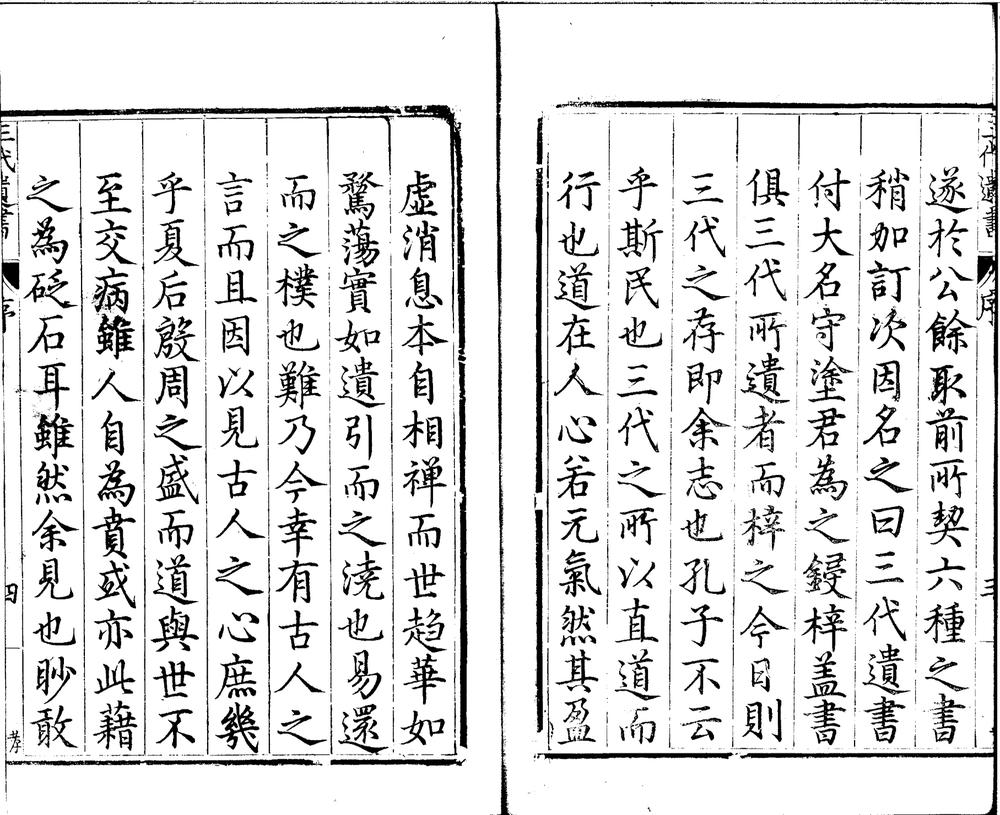 三代遺書
序
三
遂於公餘取前所契六種之書
稍加訂次因名之曰三代遺書
付大名守塗君為之鋟梓盖書
俱三代所遺者而梓之今日則
三代之存即余志也孔子不云
乎斯民也三代之所以直道而
行也道在人心若元氣然其盈
虛消息本自相禅而世趋華如
騖蕩實如遺引而之澆也易還
而之樸也難乃今幸有古人之
言而且因以見古人之心庶幾
乎夏后殷周之盛而道與世不
至交病雖人自為賁或亦此藉
之為砭石耳雖然余見也眇敢
三代遺書
序
四